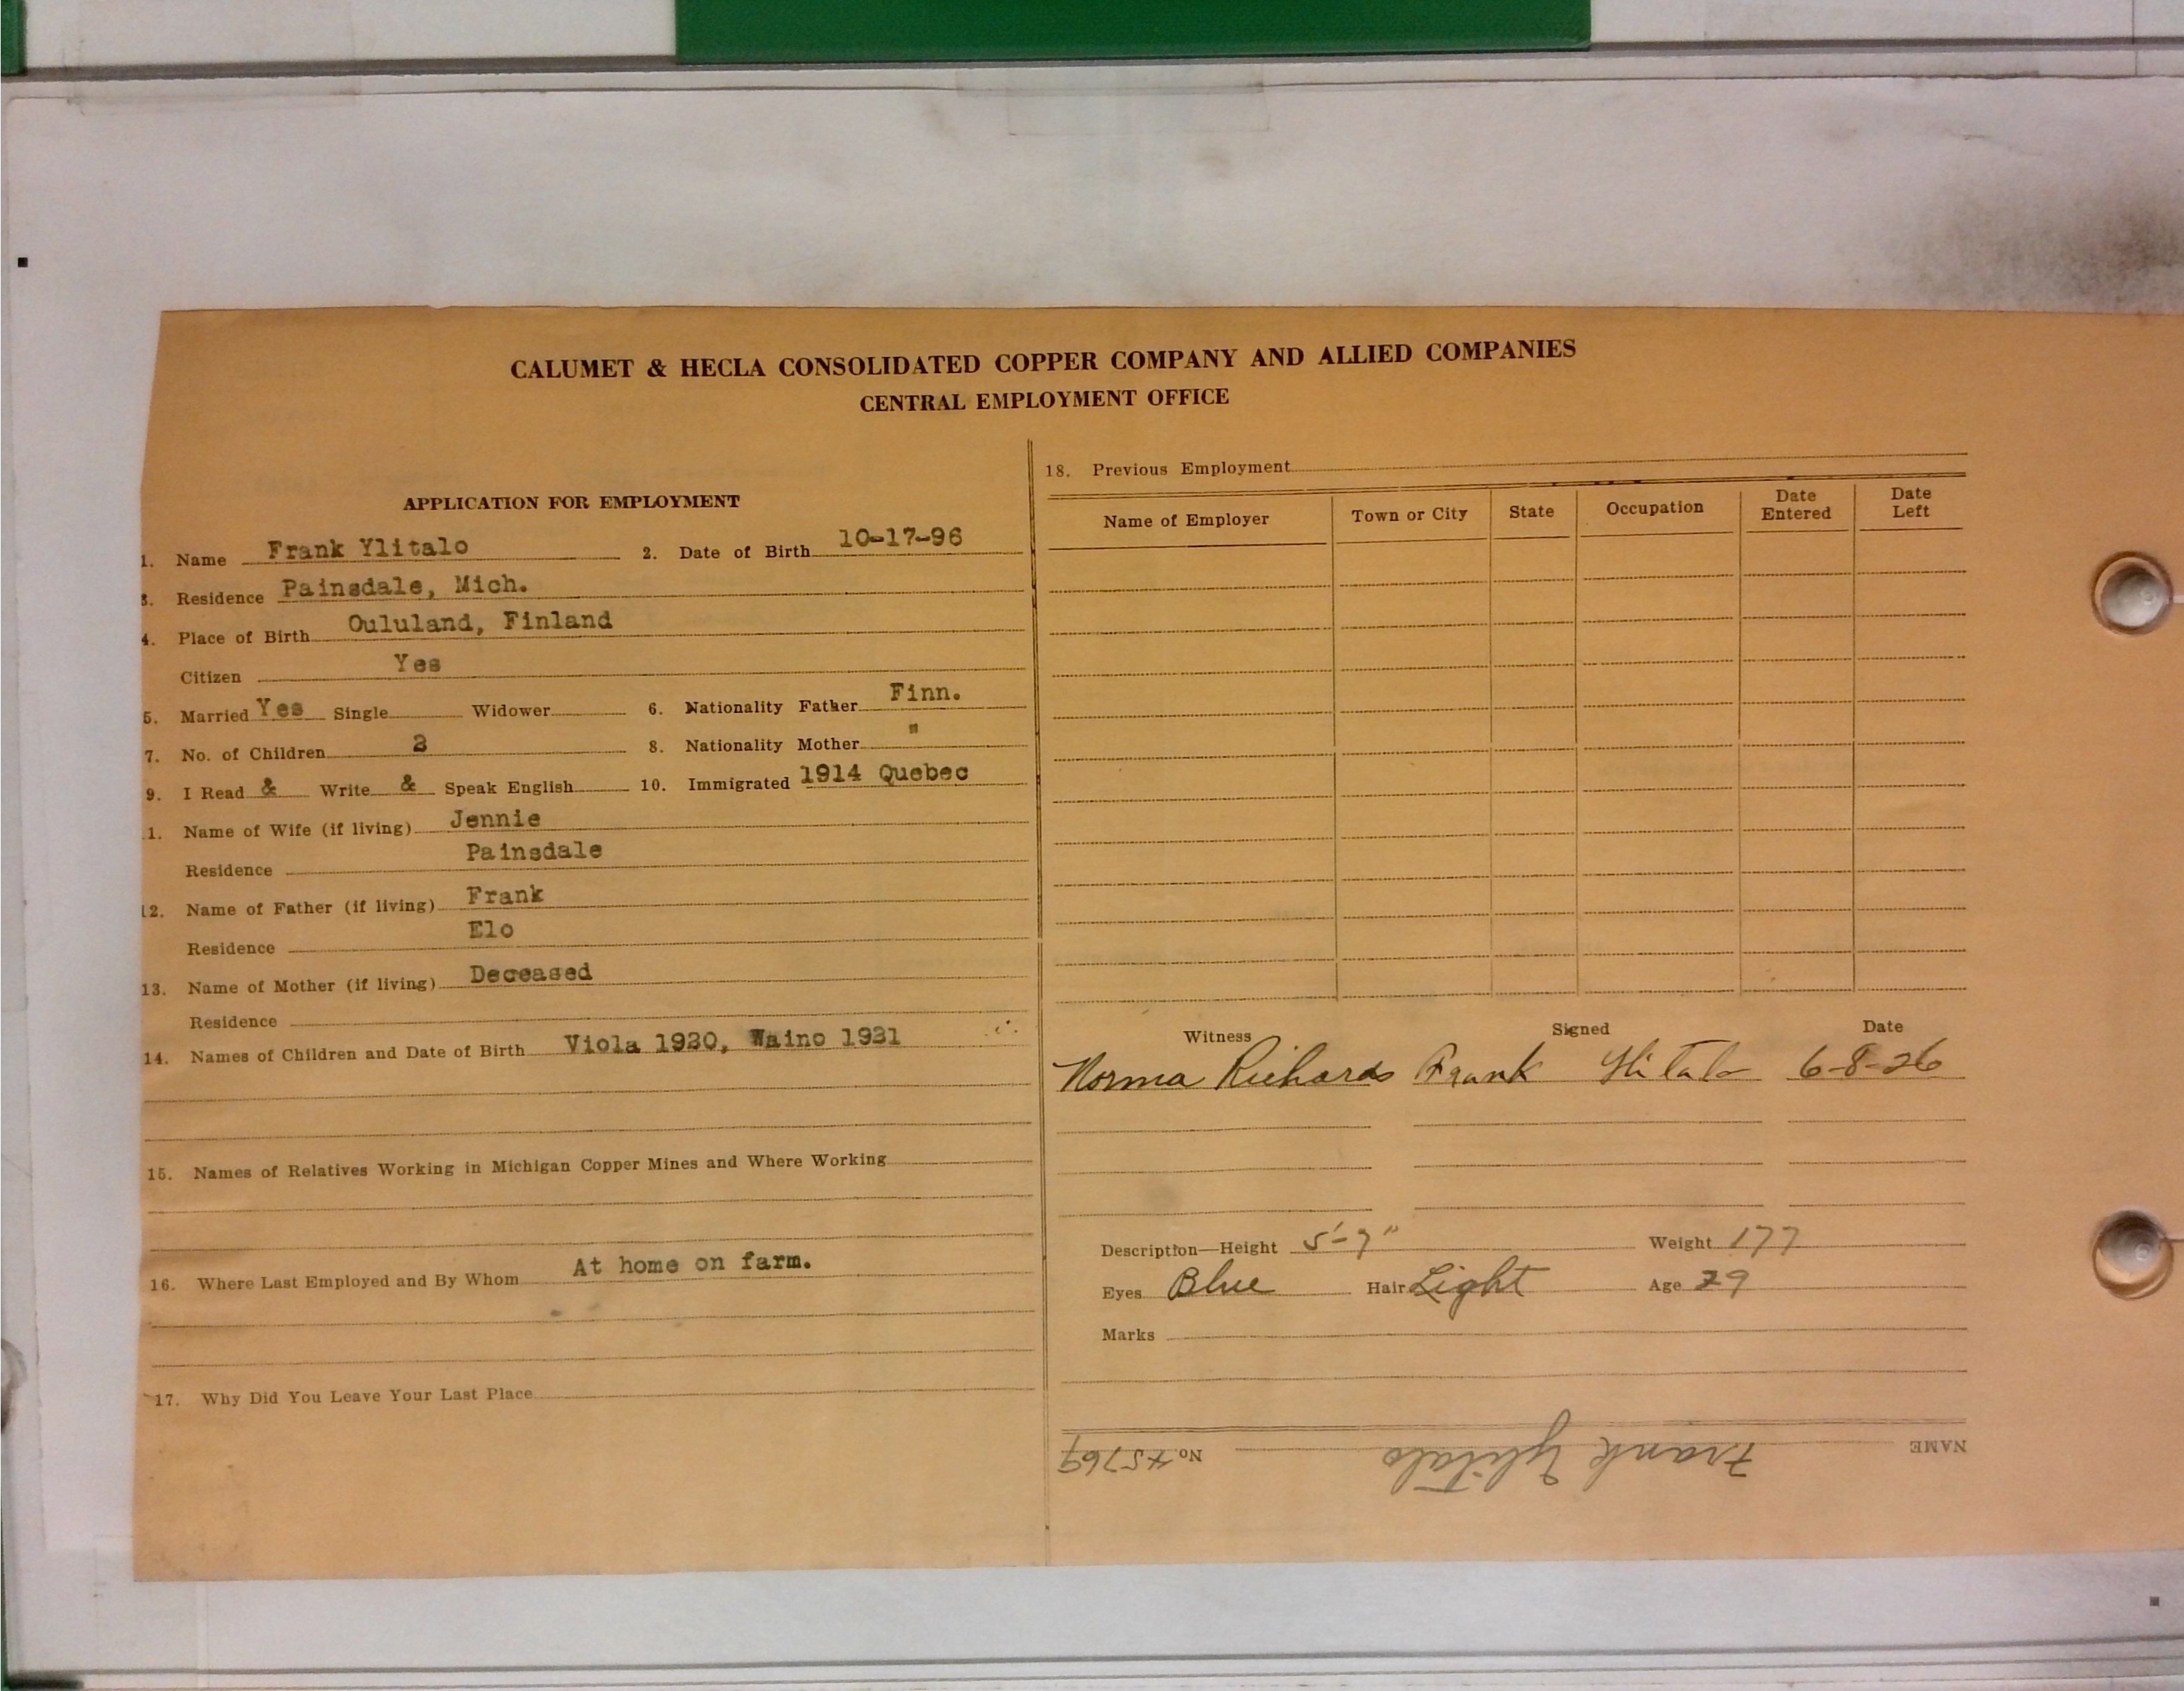 CALUMET & HECLA CONSOLIDATED COPPER COMPANY AND ALLIED COMPANIES
CENTRAL EMPLOYMENT OFFICE
APPLICATION FOR EMPLOYMENT
1. Name Frank Ylitalo 2. Date of Birth 10-17-96
3. Residence Painsdale, Mich.
4. Place of Birth Oululand, Finland
Citizen Yes
5. Married Yes Single Widower 6. Nationality Father Finn.
7. No. of Children 2 8. Nationality Mother "
9. I Read & Write & Speak English 10. Immigrated 1914 Quebec
1. Name of Wife (if living) Jennie
Residence Painsdale
12. Name of Father (if living) Frank
Residence Elo
13. Name of Mother (if living) Deceased
Residence
14. Names of Children and Date of Birth Viola 1920, Waino 1921
15. Names of Relatives Working in Michigan Copper Mines and Where Working
16. Where Last Employed and By Whom At home on farm.
17. Why Did You Leave Your Last Place
18. Previous Employment
Name of Employer Town or City State Occupation Date Entered Date Left
Witness Signed Date
Norma Richards Frank Ylitalo 6-8-26
Description—Height 5'-7" Weight 177
Eyes Blue Hair Light Age 29
Marks
NAME Frank Ylitalo No.